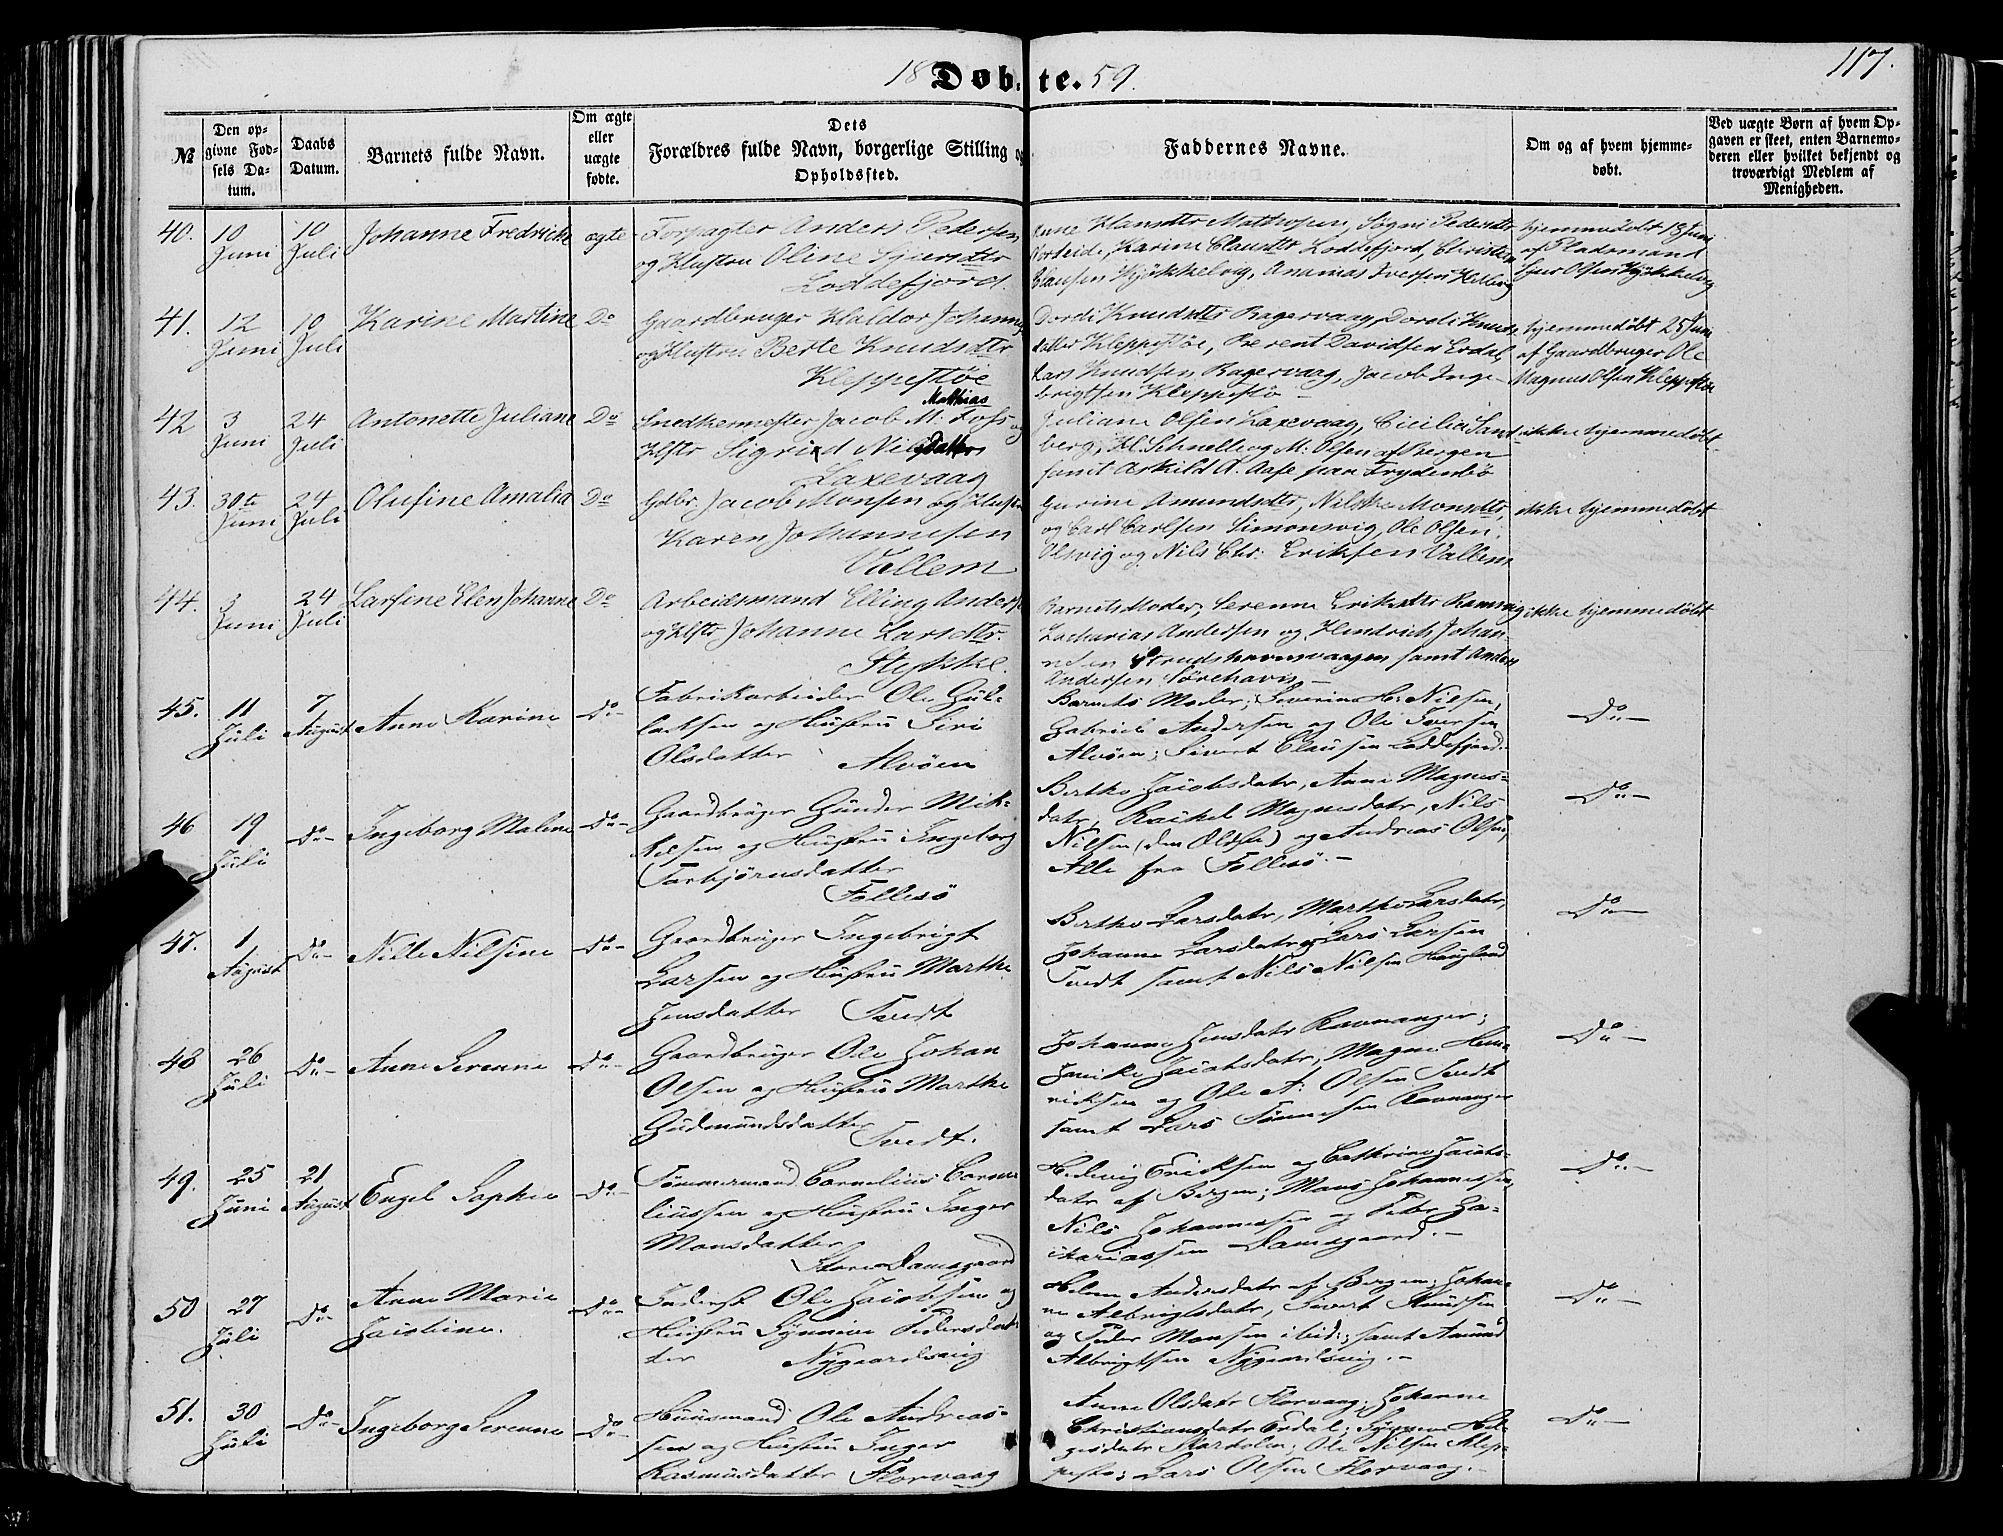 117.
18 Døbte. 59.
№
Den opgivne Fødsels Datum.
Daabs Datum.
Barnets fulde Navn.
Om ægte eller uægte fødte.
Dets Forældres fulde Navn, borgerlige Stilling og Opholdssted.
Faddernes Navne.
Om og af hvem hjemmedøbt.
Ved uægte Børn af hvem Opgaven er skeet, enten Barnemoderen eller hvilket bekjendt og troværdigt Medlem af Menigheden.
40. 10 Juni 10 Juli Johanne Fredricke ægte
Forpagter Anders Pedersen
og Hustru Oline Sjursdtr
Loddefjord.
Anne Hansdtr Mathopen, Sygni Pedersdtr
Karine Clausdtr Loddefjord, Christen
Clausen Kjøkkelvig, Ananias Iversen
hjemmedøbt 13 Juni
af Pladsmand
Sjur Olsen Kjøkkelvig
41. 12 Juni 10 Juli Karine Martine Do
Gaardbruger Haldor Johannes
og Hustru Berte Knudsdtr
Kleppestøe
Dordi Knudsdtr Ragervaag, Dordi Knuds
datter Kleppestøe, Berent Davidsen Erdal,
Lars Knudsen Ragervaag, Jacob Inge-
brigtsen Kleppestø
hjemmedøbt 25 Juni
af Gaardbruger Ole
Magnus Olsen Kleppestøe
42 3 Juni 24 Juli Antonette Juliane Do
Mathias
Snedkermester Jacob M. Foss og
Hstr Sigrid Nilsdatter
Laxevaag
Juliane Olsen Laxevaag, Cicilia Sand
berg, H. Schnelle og M. Olsen af Bergen
samt Askild A. Aase paa Frydenbø
ikke hjemmedøbt
43. 30te Juni 24 Juli Olufine Amalia Do
Gdbr. Jacob Monsen og Hustru
Karen Johannesen
Vallem
Gurine Amundsdtr, Nilske Monsdtr,
og Carl Carlsen Simonsvig, Ole Olsen
Olsvig og Nils Chr. Eriksen Vallem
ikke hjemmedøbt
44. 3 Juni 24 Juli Larsine Elen Johanne Do
Arbeidsmand Elling Anders
og Hstr Johanne Larsdtr.
Stykke.
Barnets Moder, Serenne Eriksdtr Ramsvig
Zacharias Andersen og Hendrich Johan-
nesen Strudshavnsvaagen samt Anders
Andersen Sørehavn
ikke hjemmedøbt
45. 11 Juli 7 August Anne Karine Do
Fabrikarbeider Ole Gul-
laksen og Hustru Siri
Olsdatter Alvøen
Barnets Moder; Severine H. Nilsen,
Gabriel Andersen og Ole Iversen
Alvøen; Sivert Clausen Loddefjord.
Do
46 19 Juli Do Ingeborg Malene Do
Gaardbruger Gunder Mik-
kelsen og Hustru Ingeborg
Torbjørnsdatter
Follesø
Berthe Jacobsdatr, Anne Magnes-
datr, Rachel Magnesdatr, Nils
Nilsen (den Ældste) og Andreas Olsen,
Alle fra Follesø.
Do
47. 1 August Do Nille Nilsine Do
Gaardbruger Ingebrigt
Larsen og Hustru Marthe
Jensdatter Tvedt
Berthe Larsdatr, Marthe Larsdatr,
Johanne Larsdatr og Lars Larsen
Tvedt samt Nils Nilsen Haugland
Do
48 26 Juli Do Anne Serenne Do
Gaardbruger Ole Johan
Olsen og Hustru Marthe
Gudmundsdatter
Tvedt.
Johanne Jensdatr Ravnanger;
Jacobsdatr, Magne Hen-
riksen og Ole A. Olsen Tvedt
samt Lars Tønnesen Ravnanger
Do
49. 25 Juni 21 August Engel Sophie Do
Tømmermand Cornelius Corne
liussen og Hustru Inger
Monsdatter
Store Damsgaard
Hedevig Eriksen og Cathrine Jacobs-
datr af Bergen; Mons Johannessen,
Nils Johannesen og Peter Za-
chariassen Damsgaard.
Do
50 27 Juli Do Anne Marie
Jacobine. Do
Inderst Ole Jacobsen og
Hustru Synnive Pedersdat-
ter Nygaardsvig
Helene Andersdatr af Bergen; Johan-
ne Albrigtsdatr, Sivert Knudsen
og Peder Monsen ibid.; samt Amund
Albrigtsen Nygaardsvig.
Do
51. 30 Juli Do Ingeborg Serenne Do
Huusmand Ole Andreas-
sen og Hustru Inger
Rasmusdatter Florvaag
Anne Olsdatr Florvaag; Johanne
Christiansdatr Erdal; Synneve Hel-
gesdatr Ole Nilsen Klep-
pestø; Lars Olsen Florvaag.
Do